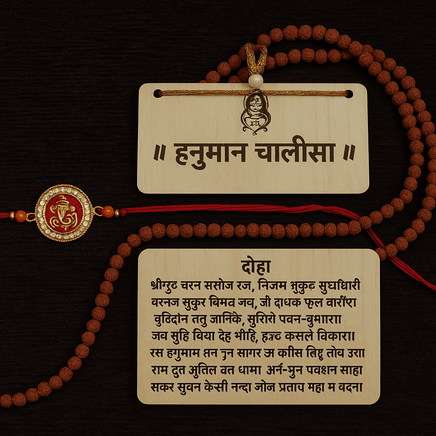 ॥ हनुमान चालीसा ॥
दोहा
श्रीगुट चरन ससोज रज, निजम
वरनज सुकुर बिमव जव, जी दाधक फूल
ततु जानिके, सुरिरो पवन-वुमाराा
जव सुहि बिया देह भीहि, कसले विकारा।
रस हगुमाम गुन सागर अ कीस तोव उरा
राम दुत अुतिल वत धामा अर्न-मुन पवशन साहा
सकर सुवन केसी नन्दा जोन प्रताप महा म वदना